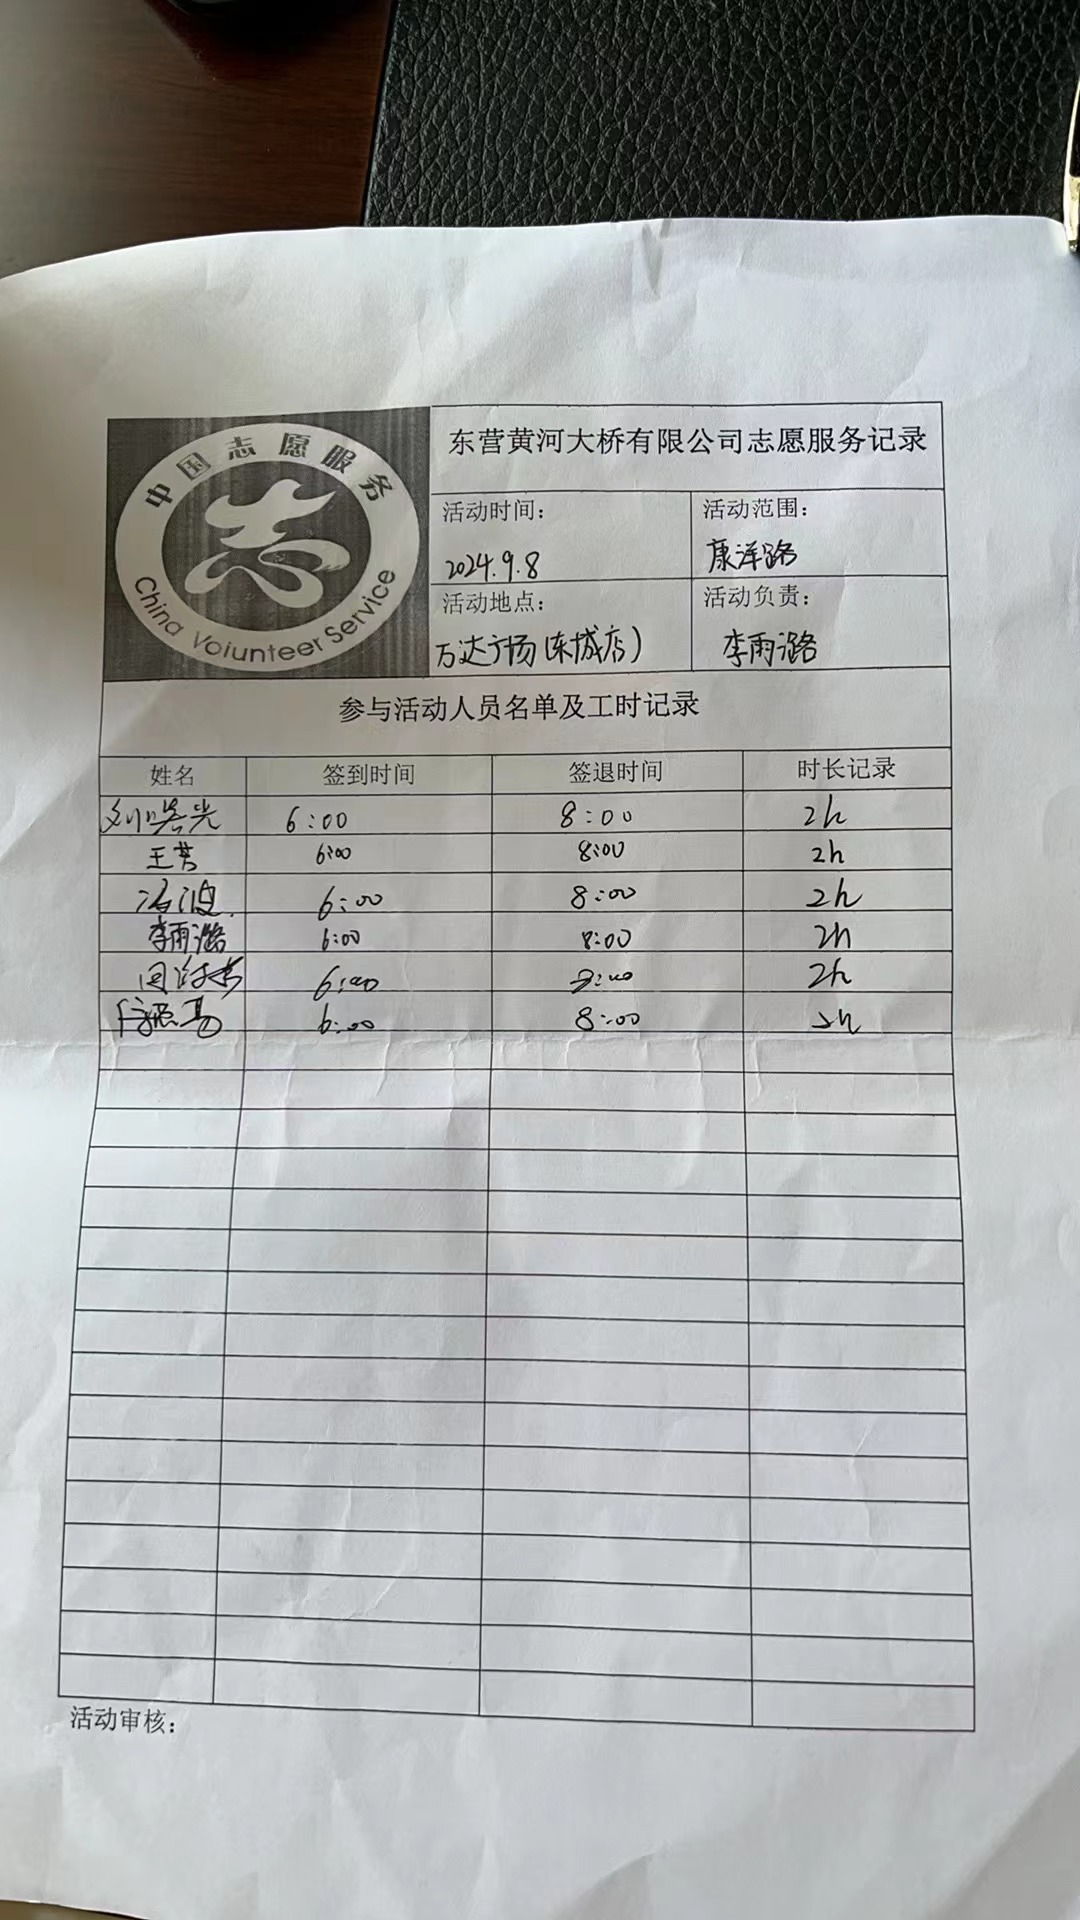 中国志愿服务
China Voiunteer Service
东营黄河大桥有限公司志愿服务记录
活动时间: 活动范围:
2024.9.8 康洋路
活动地点: 活动负责:
万达广场(东城店) 李雨潞
参与活动人员名单及工时记录
姓名 签到时间 签退时间 时长记录
刘曙光 6:00 8:00 2h
王芸 6:00 8:00 2h
6:00 8:00 2h
李雨潞 6:00 8:00 2h
6:00 8:00 2h
6:00 8:00 2h
活动审核: